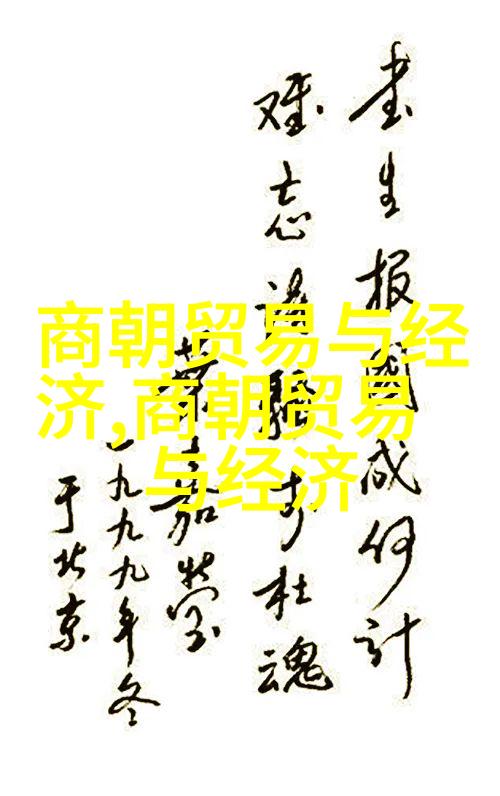 商朝贸易与经
济,商朝贸易
与经济
书生报國成何计
难忘诗骚李杜魂
葉嘉莹
一九九九年冬
于北京